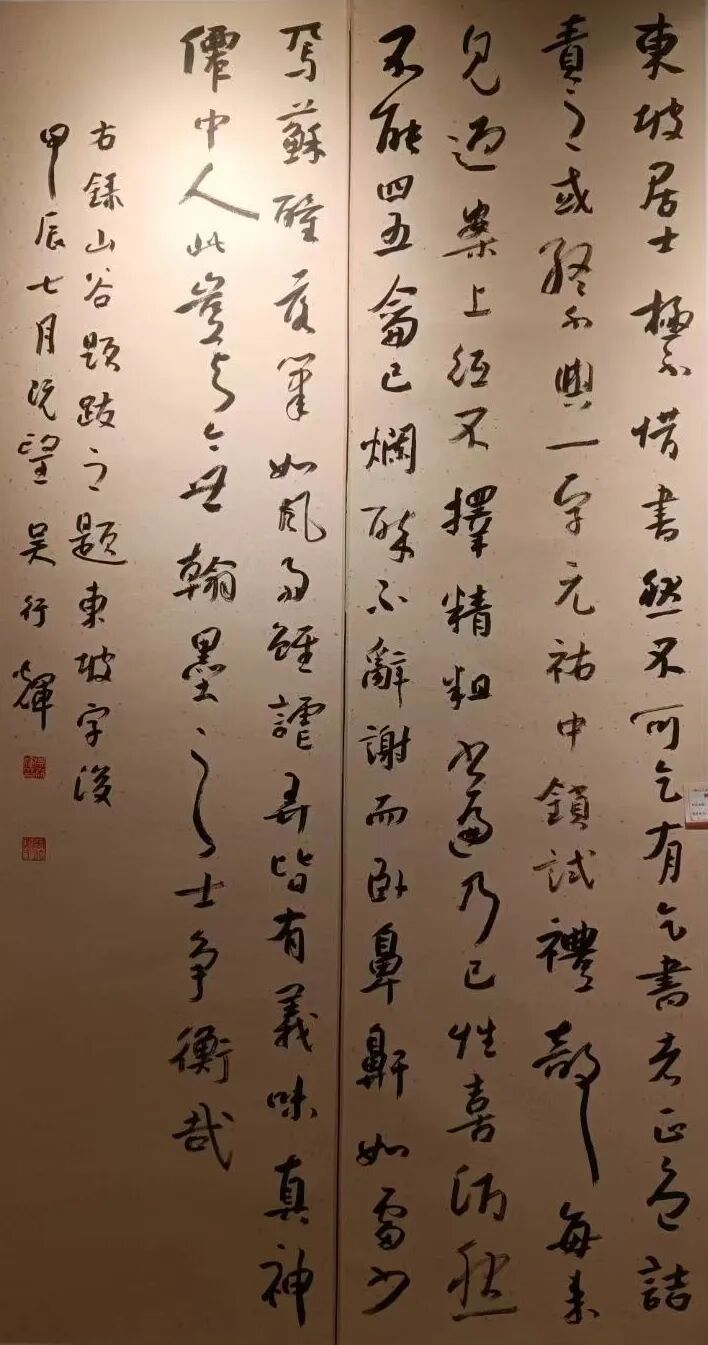 東坡居士極不惜書然不可乞有乞書者正色詰
責之或終不與一字元祐中鎖試禮部每來
見過案上紙不擇精粗書遍乃已性喜酒然
不能四五龠已爛醉不辭謝而臥鼻鼾如雷少
焉蘇醒落筆如風雨雖謔弄皆有義味真神
僊中人此豈與今世翰墨之士爭衡哉
右錄山谷題跋之題東坡字後
甲辰七月既望吳行輝